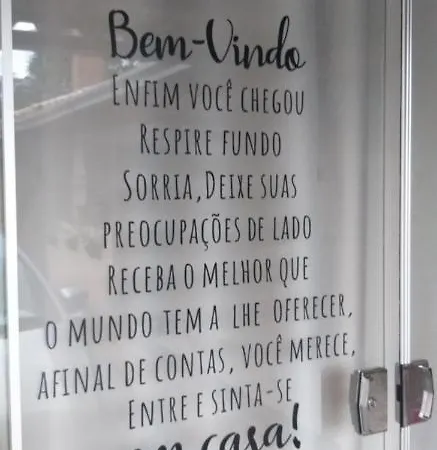 Bem-Vindo
ENFIM VOCÊ CHEGOU
RESPIRE FUNDO
SORRIA, DEIXE SUAS
PREOCUPAÇÕES DE LADO
RECEBA O MELHOR QUE
O MUNDO TEM A LHE OFERECER,
AFINAL DE CONTAS, VOCÊ MERECE,
ENTRE E SINTA-SE
casa!